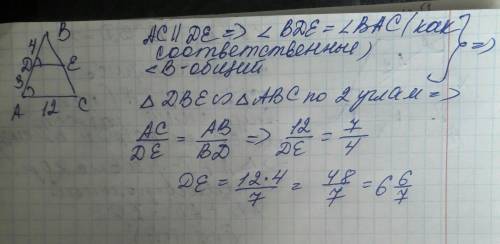 B
4
D
E
3
A
12
C
AC || DE => ∠BDE = ∠BAC (как
соответственные)
∠B - общий
} =>
△DBE ∽ △ABC по 2 углам =>
AC/DE = AB/BD => 12/DE = 7/4
DE = 12·4/7 = 48/7 = 6 6/7